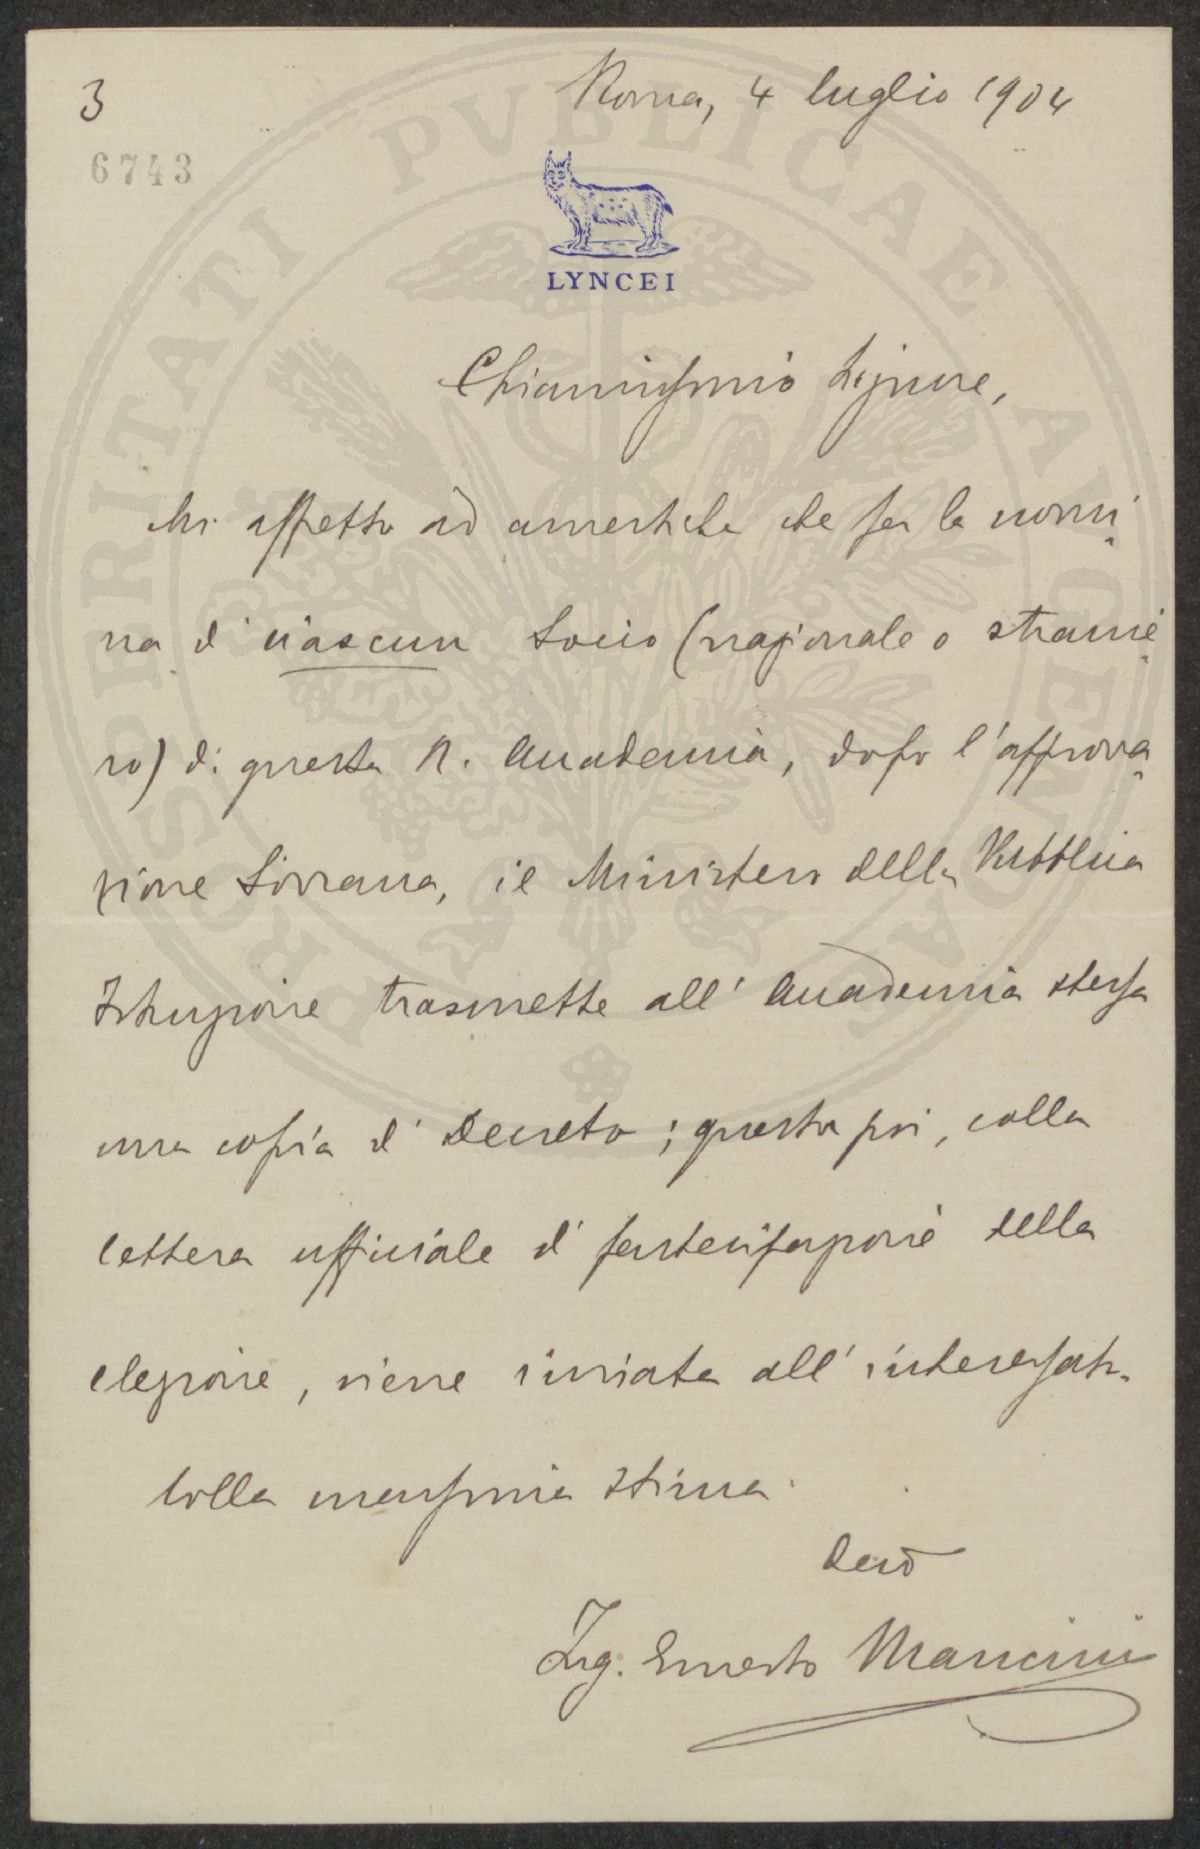 3
Roma, 4 luglio 1904
6743
LYNCEI
PROSPERITATI PVBLICAE AVGENDAE
Chiarissimo Signore,
Mi affretto ad avvertirla che per la nomi-
na di ciascun Socio (nazionale o stranie-
ro) di questa R. Accademia, dopo l'approva-
zione Sovrana, il Ministero della Pubblica
Istruzione trasmette all'Accademia stessa
una copia di Decreto; questa poi, colla
lettera ufficiale di partecipazione della
elezione, viene inviata all'interessato.
Colla massima stima.
Devõ
Ing. Ernesto Mancini